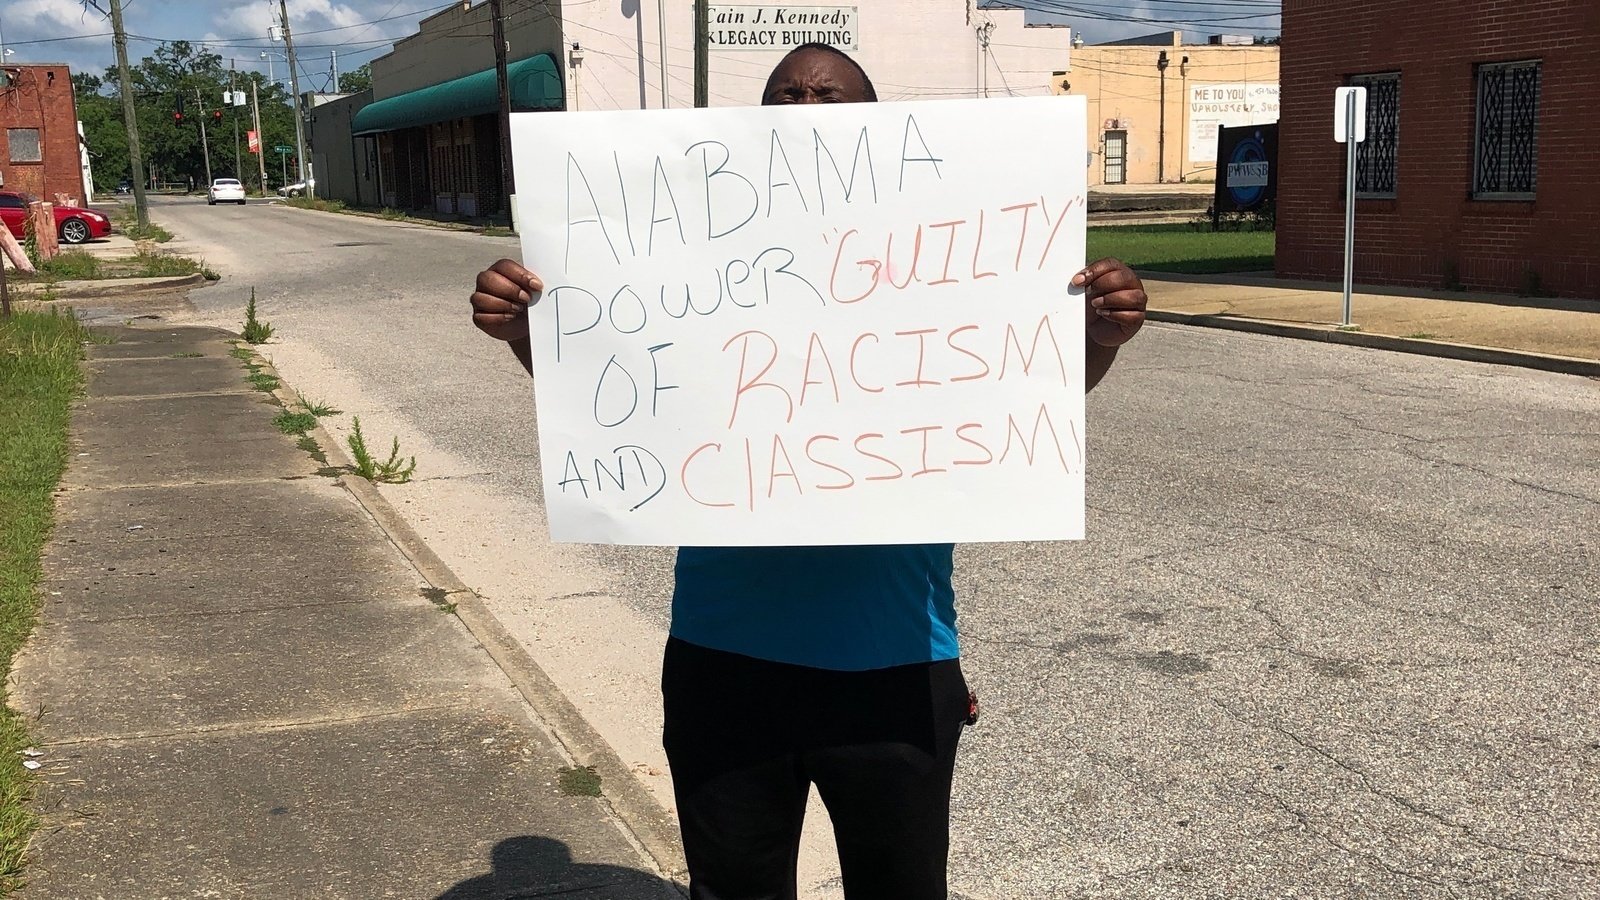 Cain J. Kennedy
LEGACY BUILDING
AlABAMA
POWeR "GUILTY"
OF RACISM
AND ClASSISM!
ME TO YOU
UPHOLSTERY SHO
PWWSB